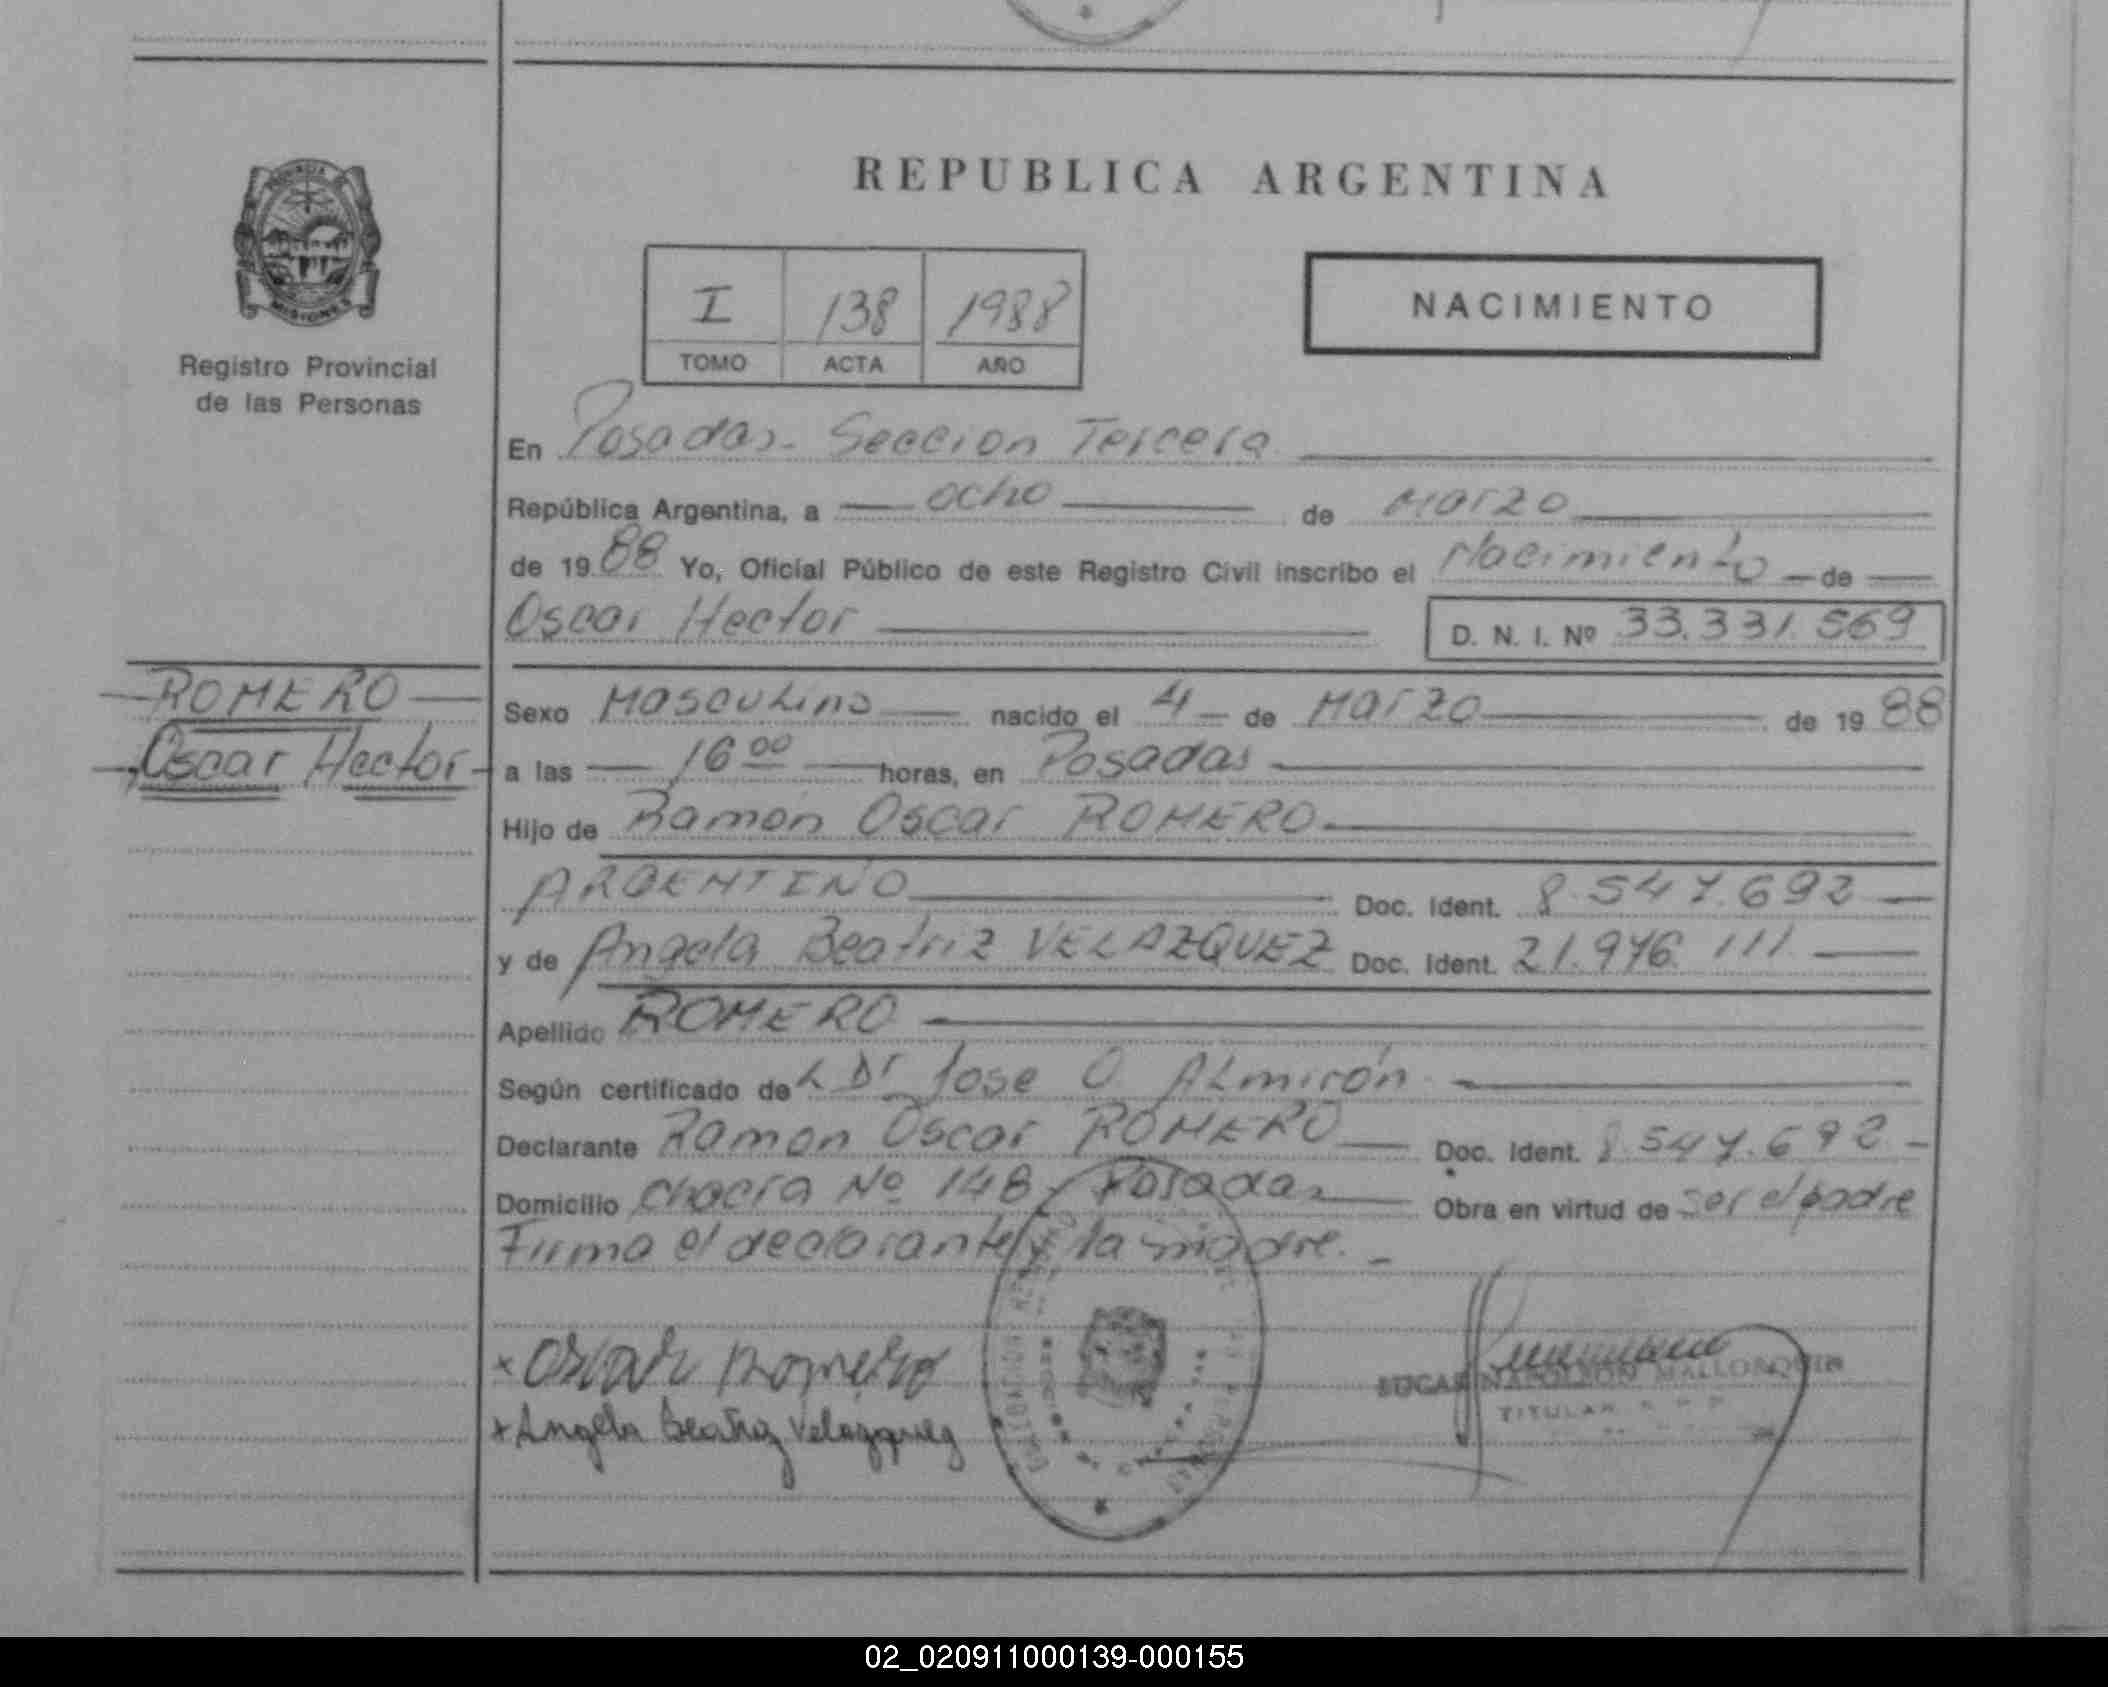 REPUBLICA ARGENTINA
PROVINCIA
MISIONES
Registro Provincial
de las Personas
I 138 1988
TOMO ACTA AÑO
NACIMIENTO
En Posadas - Seccion Tercera
República Argentina, a ocho de Marzo
de 19 88 Yo, Oficial Público de este Registro Civil inscribo el Nacimiento de
Oscar Hector D. N. I. Nº 33.331.569
ROMERO
Oscar Hector
Sexo Masculino nacido el 4 de Marzo de 19 88
a las 16 00 horas, en Posadas
Hijo de Ramón Oscar ROMERO
ARGENTINO Doc. Ident. 8.547.692
y de Angela Beatriz VELAZQUEZ Doc. Ident. 21.976.111
Apellido ROMERO
Según certificado de L Dr Jose O. Almirón
Declarante Ramon Oscar ROMERO Doc. Ident. 8.547.692
Domicilio chacra Nº 148 - Posadas Obra en virtud de ser el padre
Firma el declarante y la madre. -
x Oscar Romero
x Angela Beatriz Velazquez
NAPOLEON MALLORQUIN
TITULAR
02_020911000139-000155